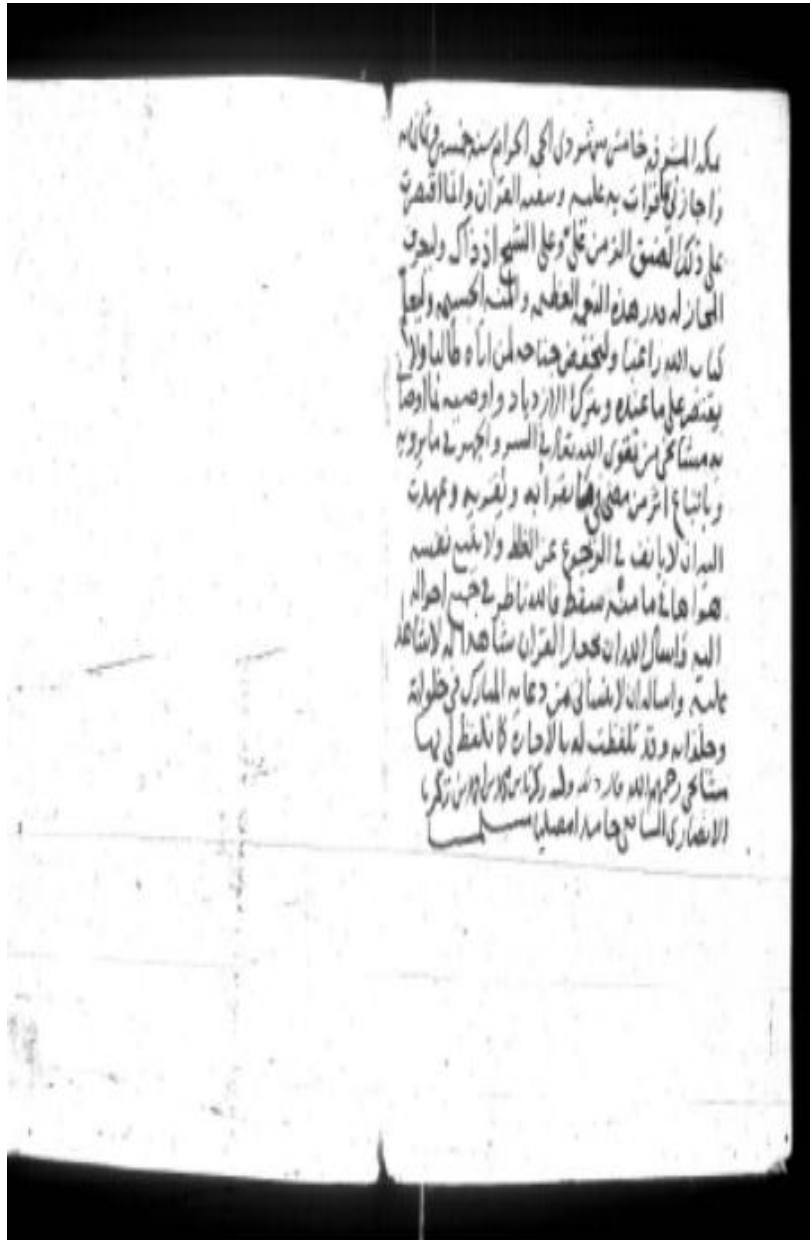 مكة المشرفة خامس شهر ذي الحجة الحرام سنة خمسين وثمان مائة
واجازني بما قرات به عليه وسعه القران وانما اقتصرت
على ذلك لضيق الزمن علي وعلى الشيخ اذ ذاك وليعرف
المجاز له قدر هذه النعم العظيمه والمنه الجسيمه وليعلم
كتاب الله راغبا وليخفض جناحه لمن اتاه طالبا ولا
يقتصر على ما عنده ويترك الازدياد واوصيه بما اوصا
به مشائخي من تقوى الله تعالى في السر والجهر في ما يرويه
وباتباع اثر من مضى فيما يقرا به ويقريه وعهدت
اليه ان لا يانف في الرجوع عن الغلط ولا يتبع نفسه
هواها في ما منه سقط فالله ناظر في جميع احواله
اليه واسال الله ان يجعل القران شاهدا له لا شاهدا
عليه واساله ان لا ينساني من دعايه المبارك في خلواته
وجلواته وقد تلفظت له بالاجازة كما تلفظ لي بها
مشائخي رحمهم الله زكريا بن محمد بن زكريا
الانصاري الشافعي حامدا مصليا مسلما